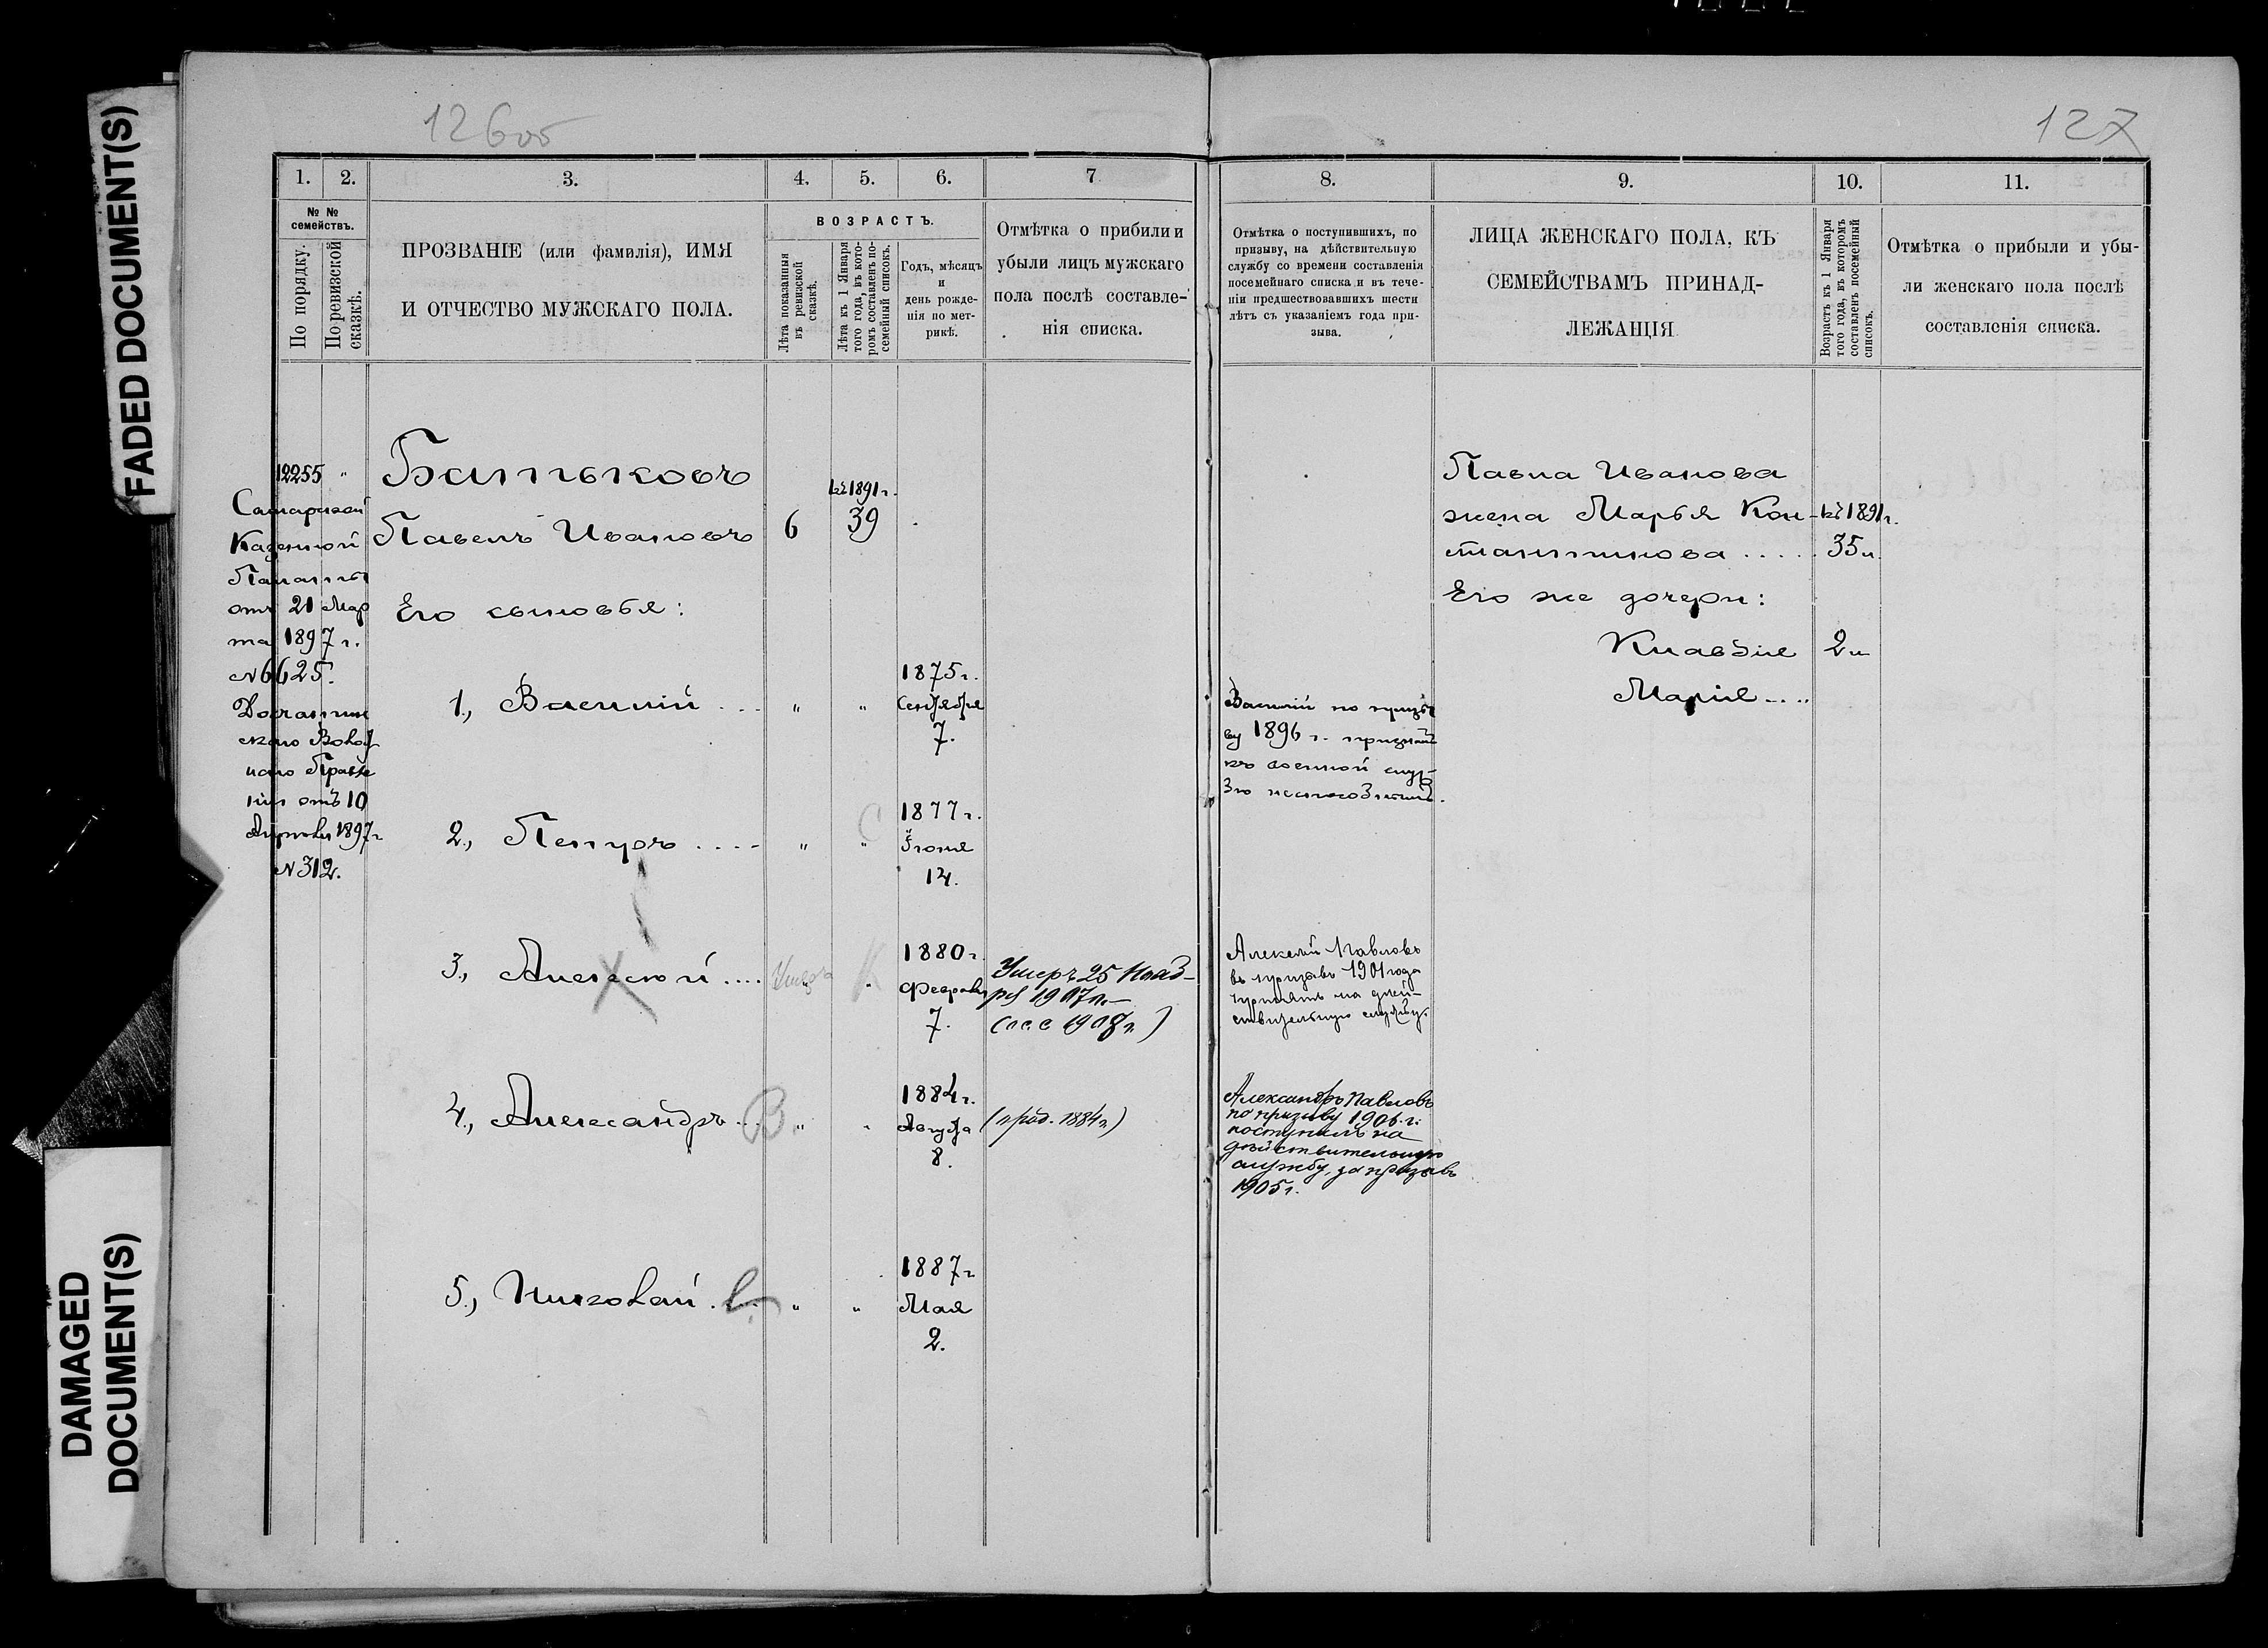 FADED DOCUMENT(S)
DAMAGED
DOCUMENT(S)
126об
127
1.
2.
3.
4.
5.
6.
7
№ №
семействъ.
По порядку.
По ревизской
сказкѣ.
ПРОЗВАНІЕ (или фамилія), ИМЯ
И ОТЧЕСТВО МУЖСКАГО ПОЛА.
ВОЗРАСТЪ.
Лѣта показанныя
въ ревизской
сказкѣ.
Лѣта къ 1 Января
того года, въ кото-
ромъ составленъ по-
семейный списокъ.
Годъ, мѣсяцъ
и
день рожде-
нія по мет-
рикѣ.
Отмѣтка о прибыли и
убыли лицъ мужскаго
пола послѣ составле-
нія списка.
12255 "
Самарской
Казенной
Палаты
отъ 21 Мар
та 1897 г.
№ 6625.
наго Правле
нія отъ 10
Апрѣля 1897 г
№ 312.
Батьковъ
къ 1891 г.
Павелъ Ивановъ 6 39
Его сыновья:
1., Василій ... " "
1875 г.
Сентября
7.
2., Петръ .... " "
1877 г.
Іюня
14.
3., Алексѣй .... Умеръ
1880 г.
Февраля
7.
Умеръ 25 Нояб-
ря 1907 г. –
1908 г.)
4., Александръ ... В " "
1884 г.
Августа
8.
(прод. 1884 г)
5., Николай . " "
1887 г
Мая
2.
8.
9.
10.
11.
Отмѣтка о поступившихъ, по
призыву, на дѣйствительную
службу со времени составленія
посемейнаго списка и въ тече-
ніи предшествовавшихъ шести
лѣтъ съ указаніемъ года при-
зыва.
ЛИЦА ЖЕНСКАГО ПОЛА, КЪ
СЕМЕЙСТВАМЪ ПРИНАД-
ЛЕЖАЩІЯ
Возрастъ къ 1 Января
того года, въ которомъ
составленъ посемейный
списокъ.
Отмѣтка о прибыли и убы-
ли женскаго пола послѣ
составленія списка.
Василій по призы
ву 1896 г. признанъ
къ военной служ-
бѣ неспособнымъ.
Алексѣй Павловъ
въ призывъ 1901 года
принятъ на дѣй-
ствительную службу.
Александръ Павловъ
по призыву 1906 г.
поступилъ на
дѣйствительную
службу, за призывъ
1905 г.
Павла Иванова
жена Марья Кон- къ 1891 г.
стантинова ..... 35 л.
Его же дочери:
Клавдія 2 л
Марія ....